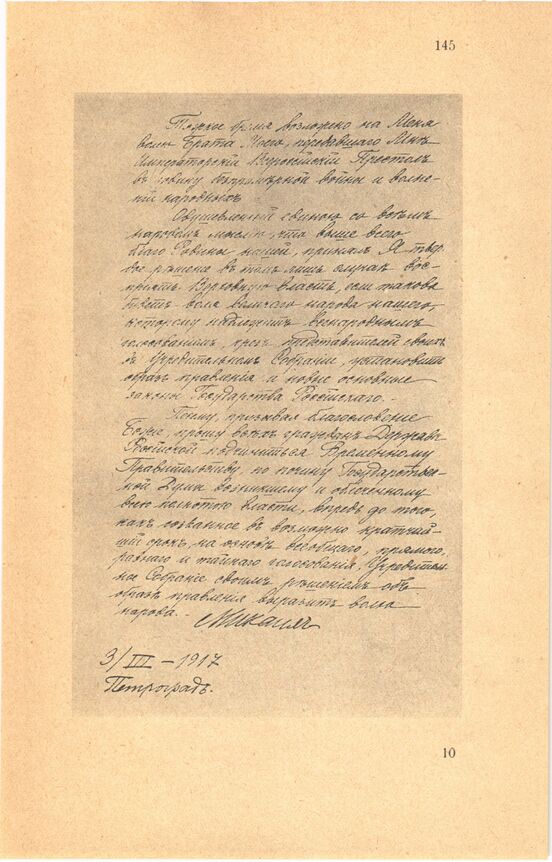 145
Тяжкое бремя возложено на Меня
волею Брата Моего, передавшаго Мнѣ
Императорскій Всероссійскій Престолъ
въ годину безпримѣрной войны и волне-
ній народныхъ.
Одушевленный единою со всѣмъ
народомъ мыслію, что выше всего
благо Родины нашей, принялъ Я твер-
дое рѣшеніе въ томъ лишь случаѣ вос-
пріять Верховную власть, если такова
будетъ воля великаго народа нашего,
которому надлежитъ всенароднымъ
голосованіемъ, чрезъ представителей своихъ
въ Учредительномъ Собраніи, установить
образъ правленія и новые основные
законы Государства Россійскаго.
Посему, призывая благословеніе
Божіе, прошу всѣхъ гражданъ Державы
Россійской подчиниться Временному
Правительству, по почину Государствен-
ной Думы возникшему и облеченному
всею полнотою власти, впредь до того,
какъ созванное въ возможно кратчай-
шій срокъ, на основѣ всеобщаго, прямого,
равнаго и тайнаго голосованія, Учредитель-
ное Собраніе своимъ рѣшеніемъ объ
образѣ правленія выразитъ волю
народа.
Михаилъ
3/III – 1917
Петроградъ.
10